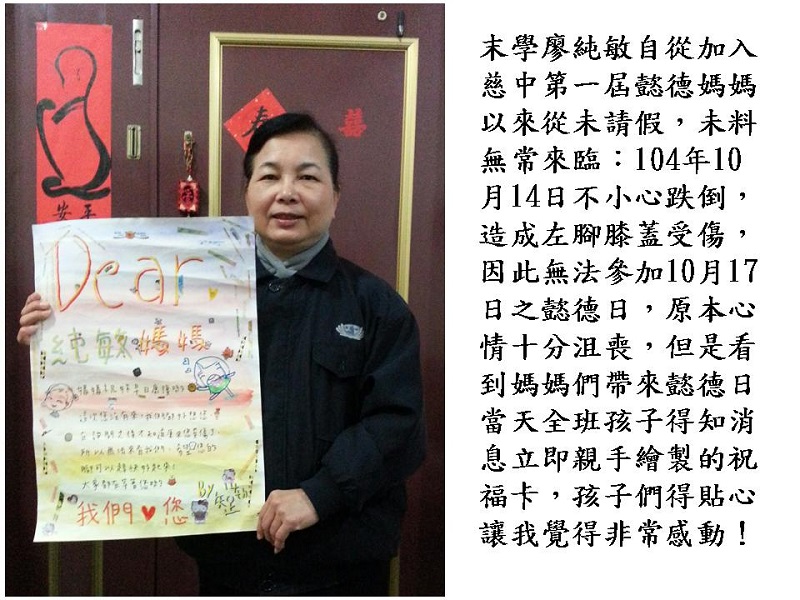 末學廖純敏自從加入
慈中第一屆懿德媽媽
以來從未請假，未料
無常來臨：104年10
月14日不小心跌倒，
造成左腳膝蓋受傷，
因此無法參加10月17
日之懿德日，原本心
情十分沮喪，但是看
到媽媽們帶來懿德日
當天全班孩子得知消
息立即親手繪製的祝
福卡，孩子們得貼心
讓我覺得非常感動！
安平
春
囍
Dear.
純敏媽媽
大家都在等著您喲
我們♥您
By